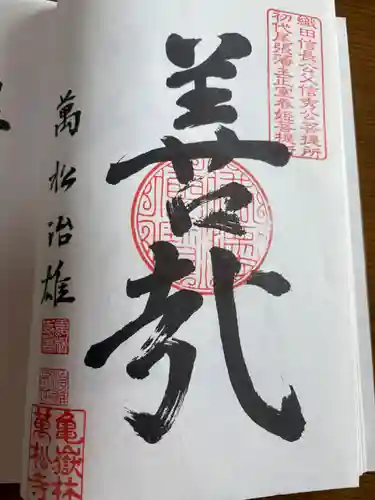 織田信長公父信秀公菩提所
初代尾張藩主正室春姫菩提所
善哉
萬松治雄
亀嶽林
萬松寺